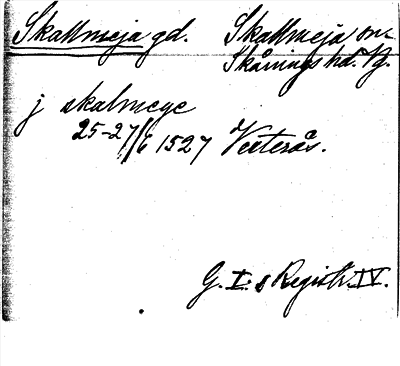 Skallmeja gd. Skallmeja sn.
Skånings hd. Vg.
j skalmeye
25-27/6 1527 Vesterås.
G. I. s Registr. IV.